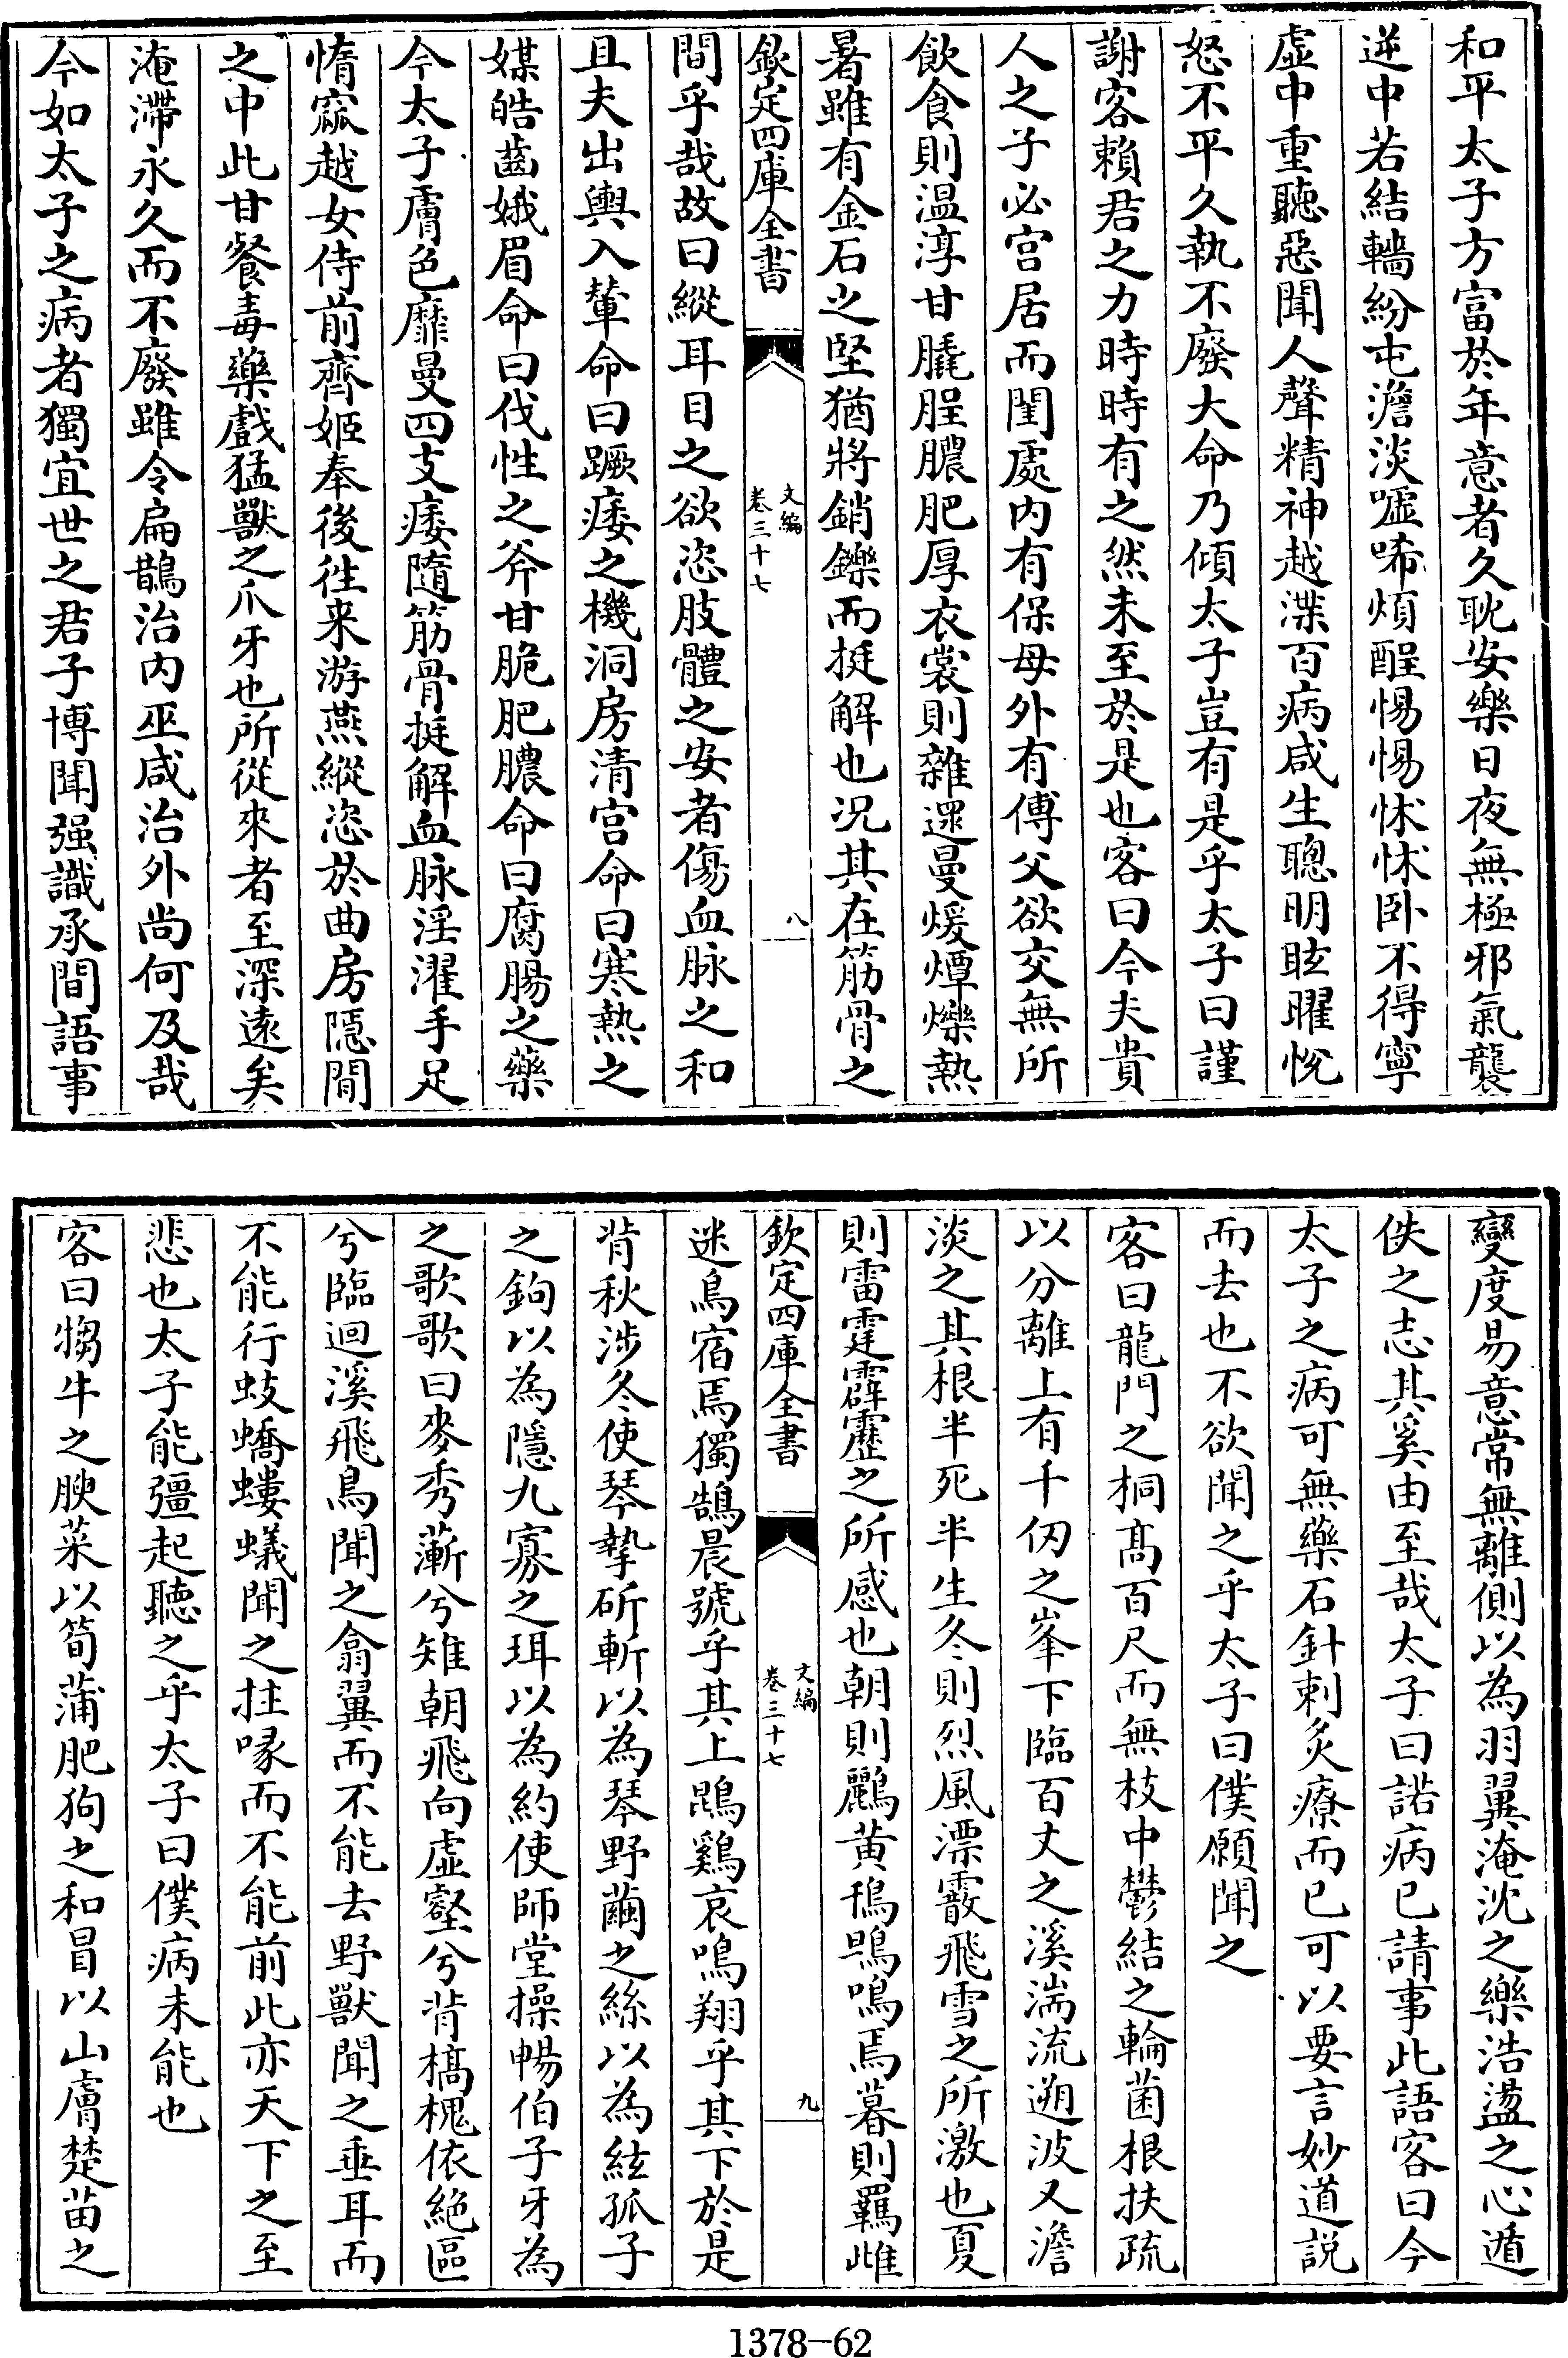 和平太子方富於年意者久耽安樂日夜無極邪氣襲
逆中若結轖紛屯澹淡噓唏煩酲惕惕怵怵卧不得寧
虛中重聽惡聞人聲精神越渫百病咸生聰明眩曜悅
怒不平久執不廢大命乃傾太子豈有是乎太子曰謹
謝客賴君之力時時有之然未至於是也客曰今夫貴
人之子必宫居而閨處内有保母外有傅父欲交無所
飲食則温淳甘膬脭醲肥厚衣裳則雜遝曼煖燂爍熱
暑雖有金石之堅猶將銷鑠而挺解也况其在筋骨之
欽定四庫全書
文編
卷三十七
八
間乎哉故曰縱耳目之欲恣肢體之安者傷血脉之和
且夫出輿入輦命曰蹶痿之機洞房清宫命曰寒熱之
媒皓齒娥眉命曰伐性之斧甘脆肥膿命曰腐腸之藥
今太子膚色靡曼四支痿隨筋骨挺解血脉淫濯手足
惰窳越女侍前齊姬奉後徃来游燕縱恣於曲房隱間
之中此甘餐毒藥戲猛獸之爪牙也所從來者至深遠矣
淹滯永久而不廢雖令扁鵲治内巫咸治外尚何及哉
今如太子之病者獨宜世之君子博聞强識承間語事
變度易意常無離側以為羽翼淹沈之樂浩盪之心遁
佚之志其奚由至哉太子曰諾病已請事此語客曰今
太子之病可無藥石針刺灸療而已可以要言妙道説
而去也不欲聞之乎太子曰僕願聞之
客曰龍門之桐髙百尺而無枝中鬱結之輪菌根扶疏
以分離上有千仞之峯下臨百丈之溪湍流遡波又澹
淡之其根半死半生冬則烈風漂霰飛雪之所激也夏
則雷霆霹靂之所感也朝則鸝黄鳱鴠鳴焉暮則羈雌
欽定四庫全書
文編
卷三十七
九
迷鳥宿焉獨鵠晨號乎其上鵾鷄哀鳴翔乎其下於是
背秋涉冬使琴摯斫斬以為琴野繭之絲以為絃孤子
之鉤以為隱九寡之珥以為約使師堂操暢伯子牙為
之歌歌曰麥秀蔪兮雉朝飛向虛壑兮背槁槐依絶區
兮臨迴溪飛鳥聞之翕翼而不能去野獸聞之垂耳而
不能行蚑蟜螻蟻聞之拄喙而不能前此亦天下之至
悲也太子能彊起聽之乎太子曰僕病未能也
客曰犓牛之腴菜以筍蒲肥狗之和冒以山膚楚苗之
1378-62